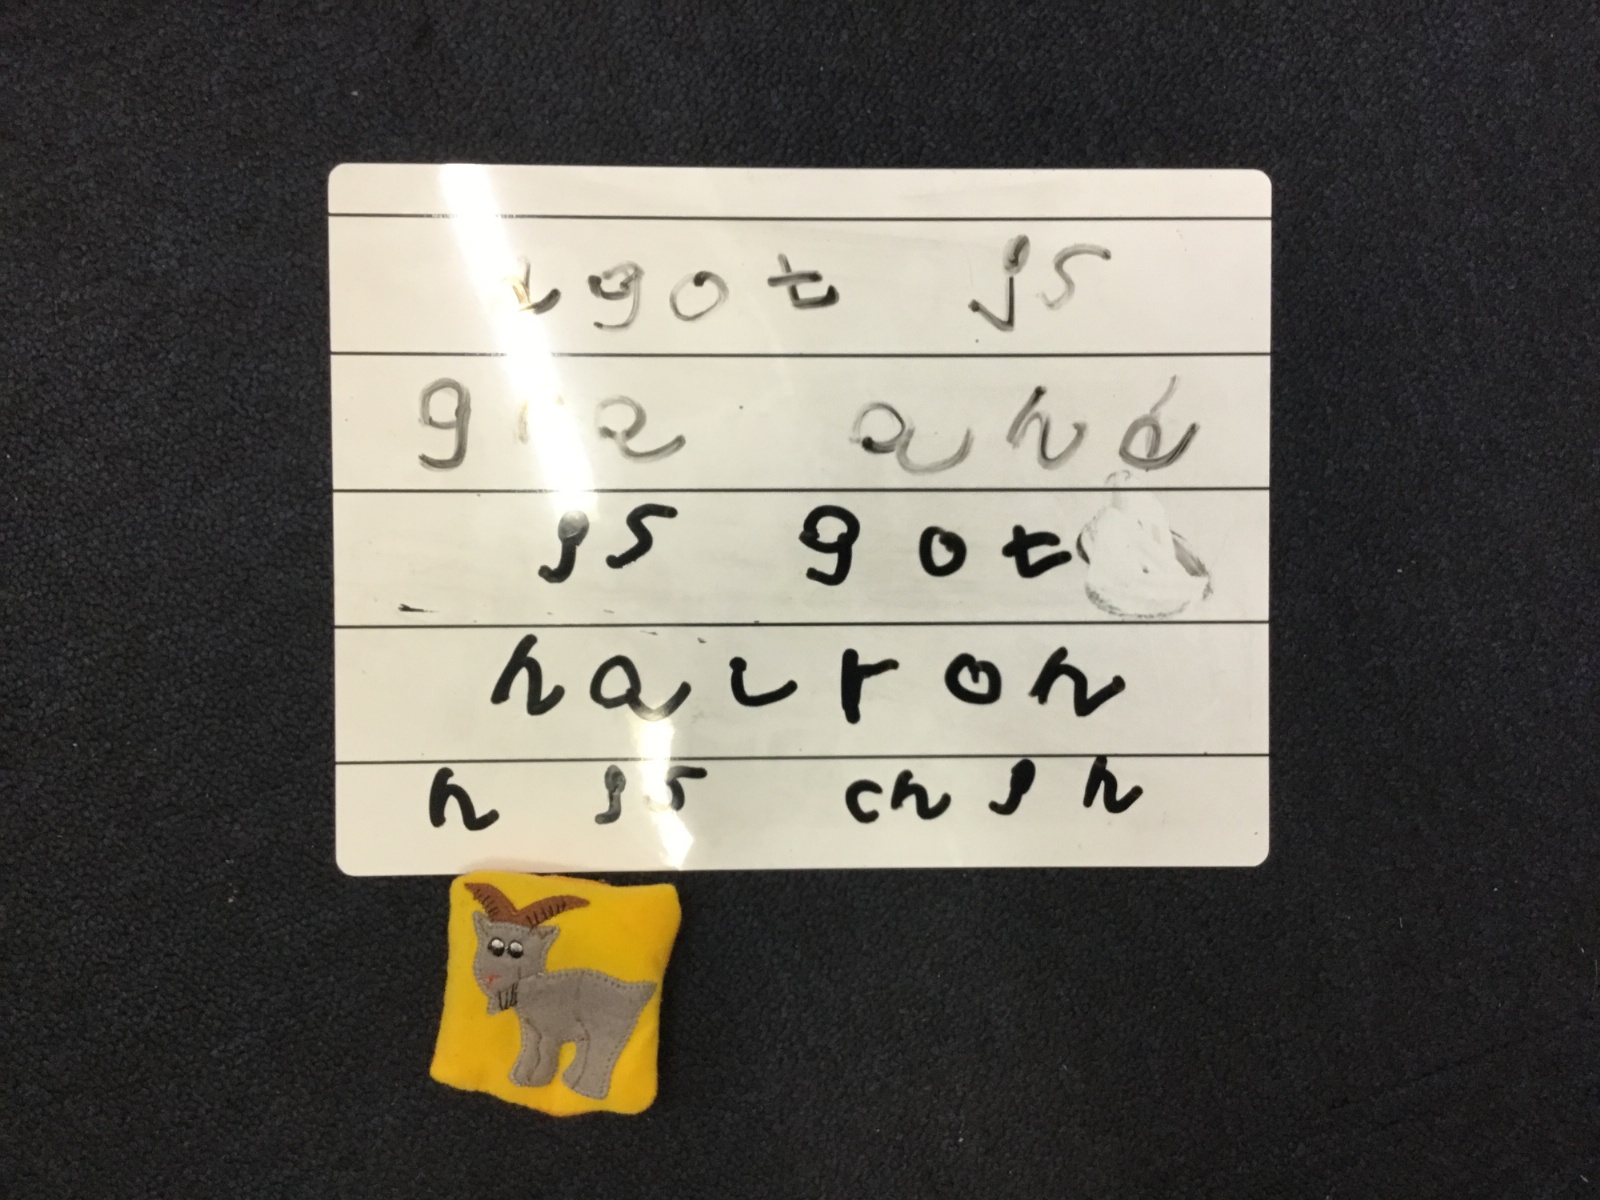 a got is
gra and
is got
hair on
h is chin